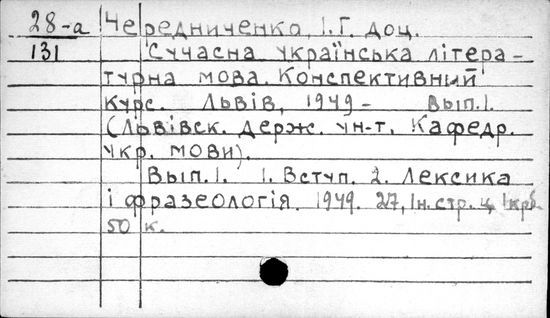 28-а Чередниченко, І.Г. доц.
131 Сучасна українська літера-
турна мова. Конспективний
курс. Львів, 1949- Вып.1.
(Львівск. держ. ун-т. Кафедр.
укр. мови).
Вып.1. 1. Вступ. 2. Лексика
і фразеологія. 1949. 27, Ін.стр. ц. 1крб.
50 к.